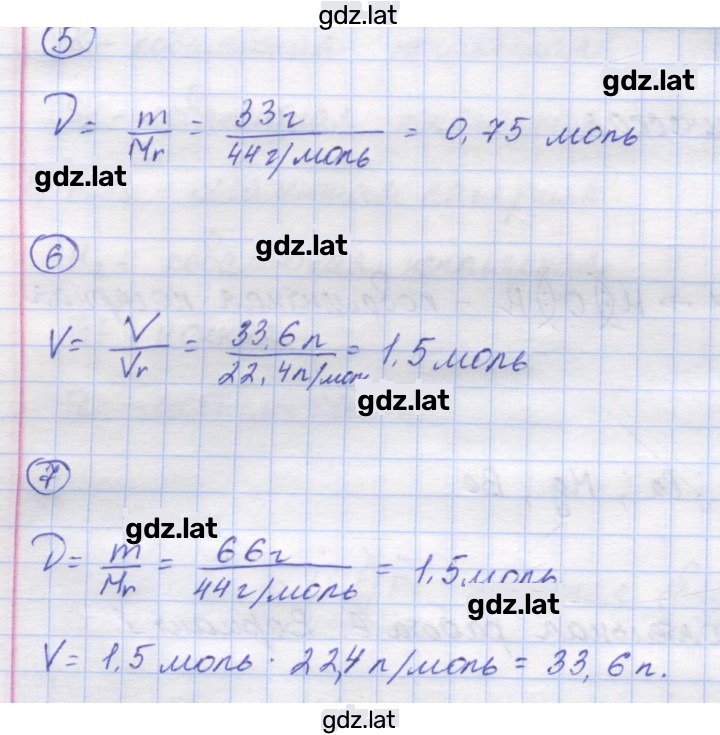 gdz.lat
5
gdz.lat
D = m/Mr = 33г/44г/моль = 0,75 моль
gdz.lat
6
gdz.lat
V = V/Vr = 33,6л/22,4л/мол = 1,5 моль
gdz.lat
7
gdz.lat
D = m/Mr = 66г/44г/моль = 1,5 моль
gdz.lat
V = 1,5 моль · 22,4 л/моль = 33,6 л.
gdz.lat